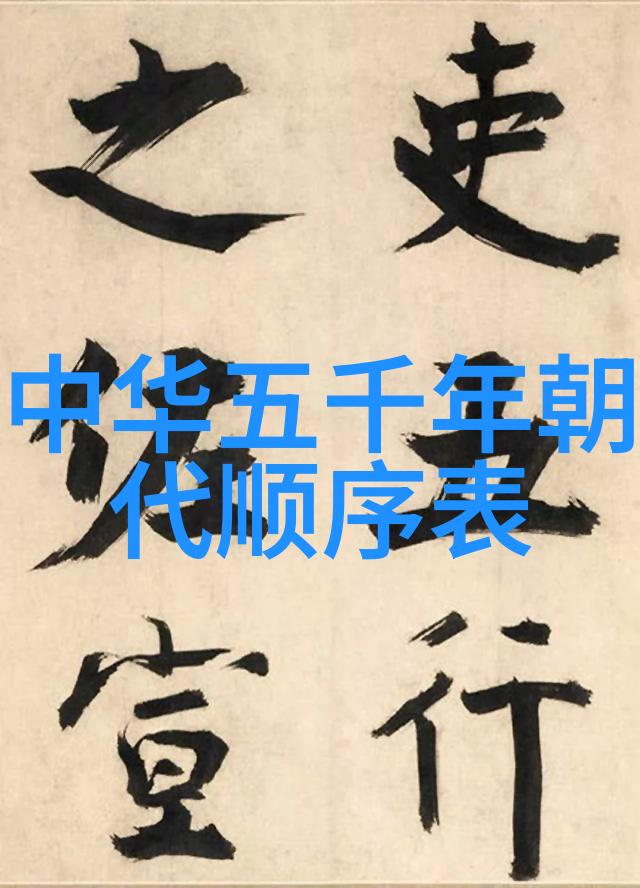 吏五行
之宣
中华五千年朝
代顺序表